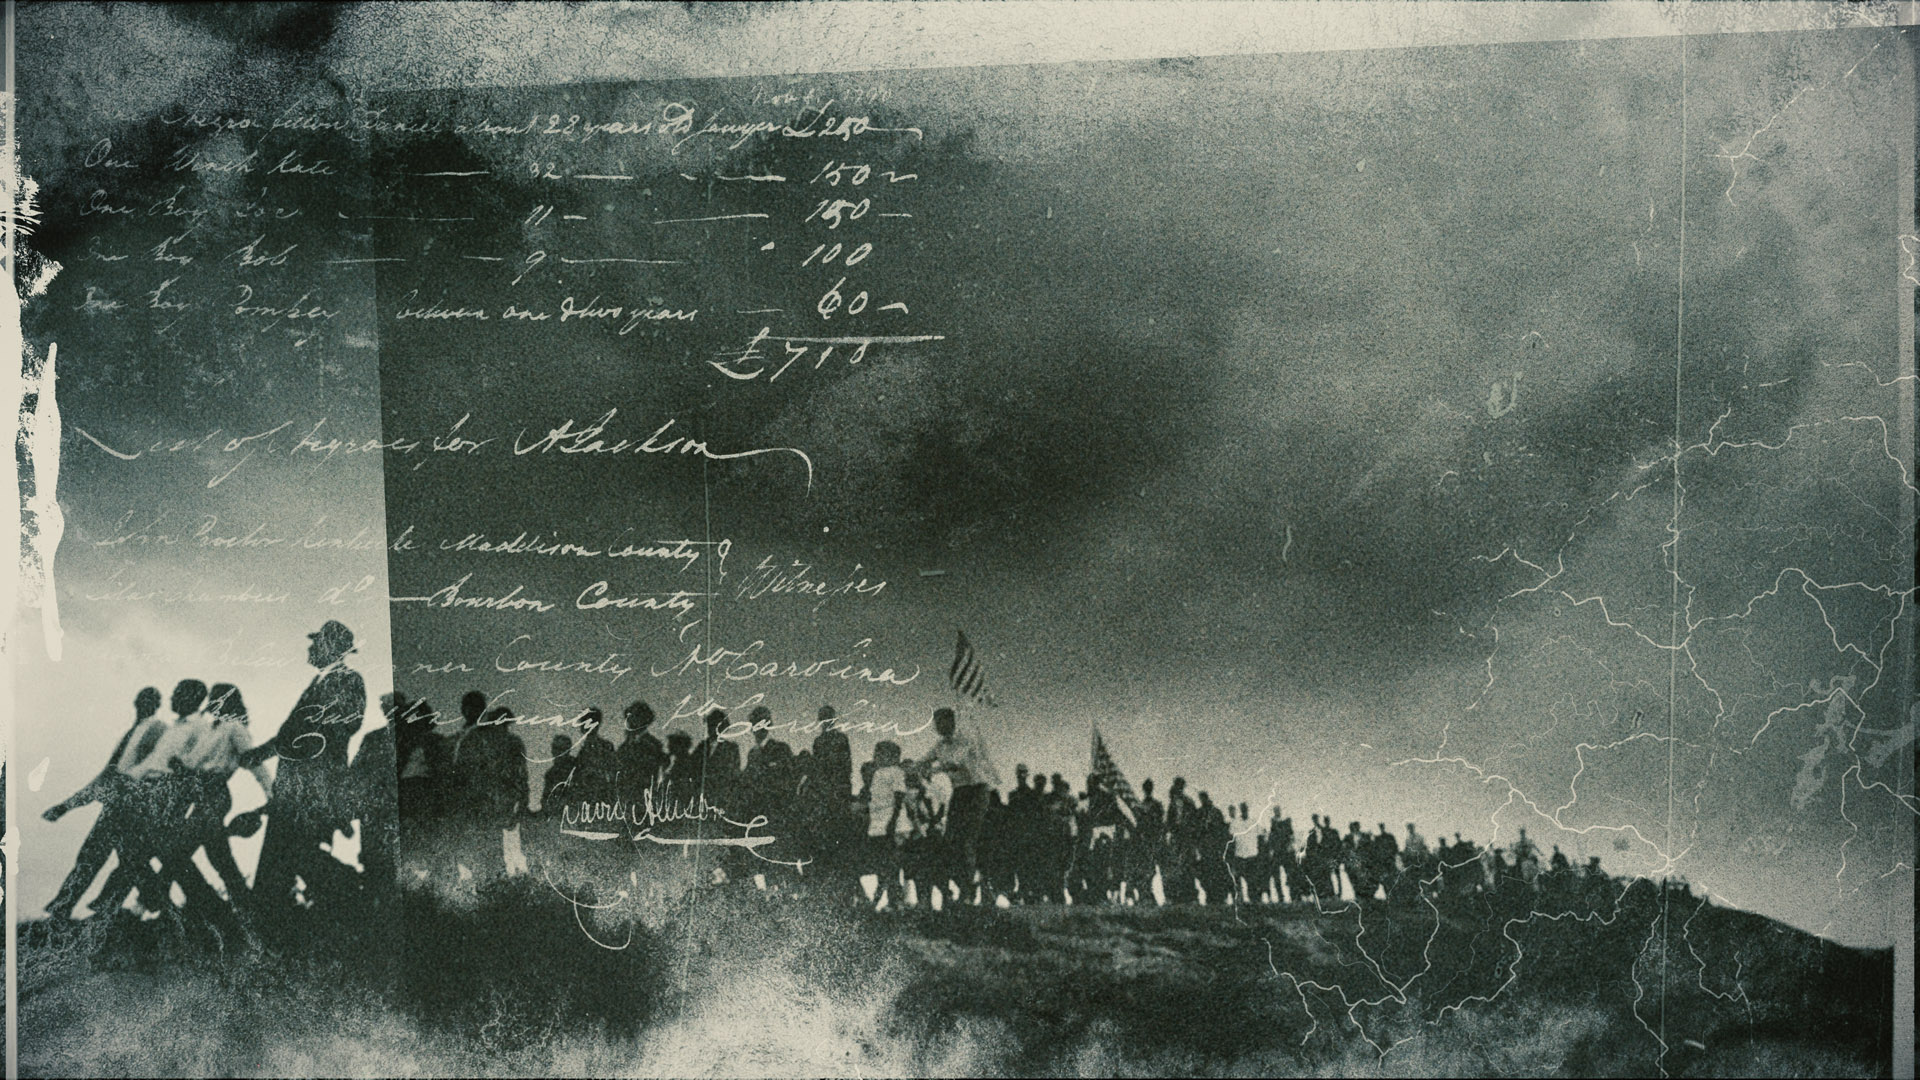 Negro fellow Daniel about 28 years old Sawyer £ 250
One Wench Kate 32 150
One Boy Joe 11 150
One Boy Bob 9 100
One Boy Pompey between one & two years 60
£710
List of Negroes for A Jackson
John Kentucke Maddison County
Chambers do Bourbon County Witnesses
ner County No Carolina
County No Carolina
David Allison